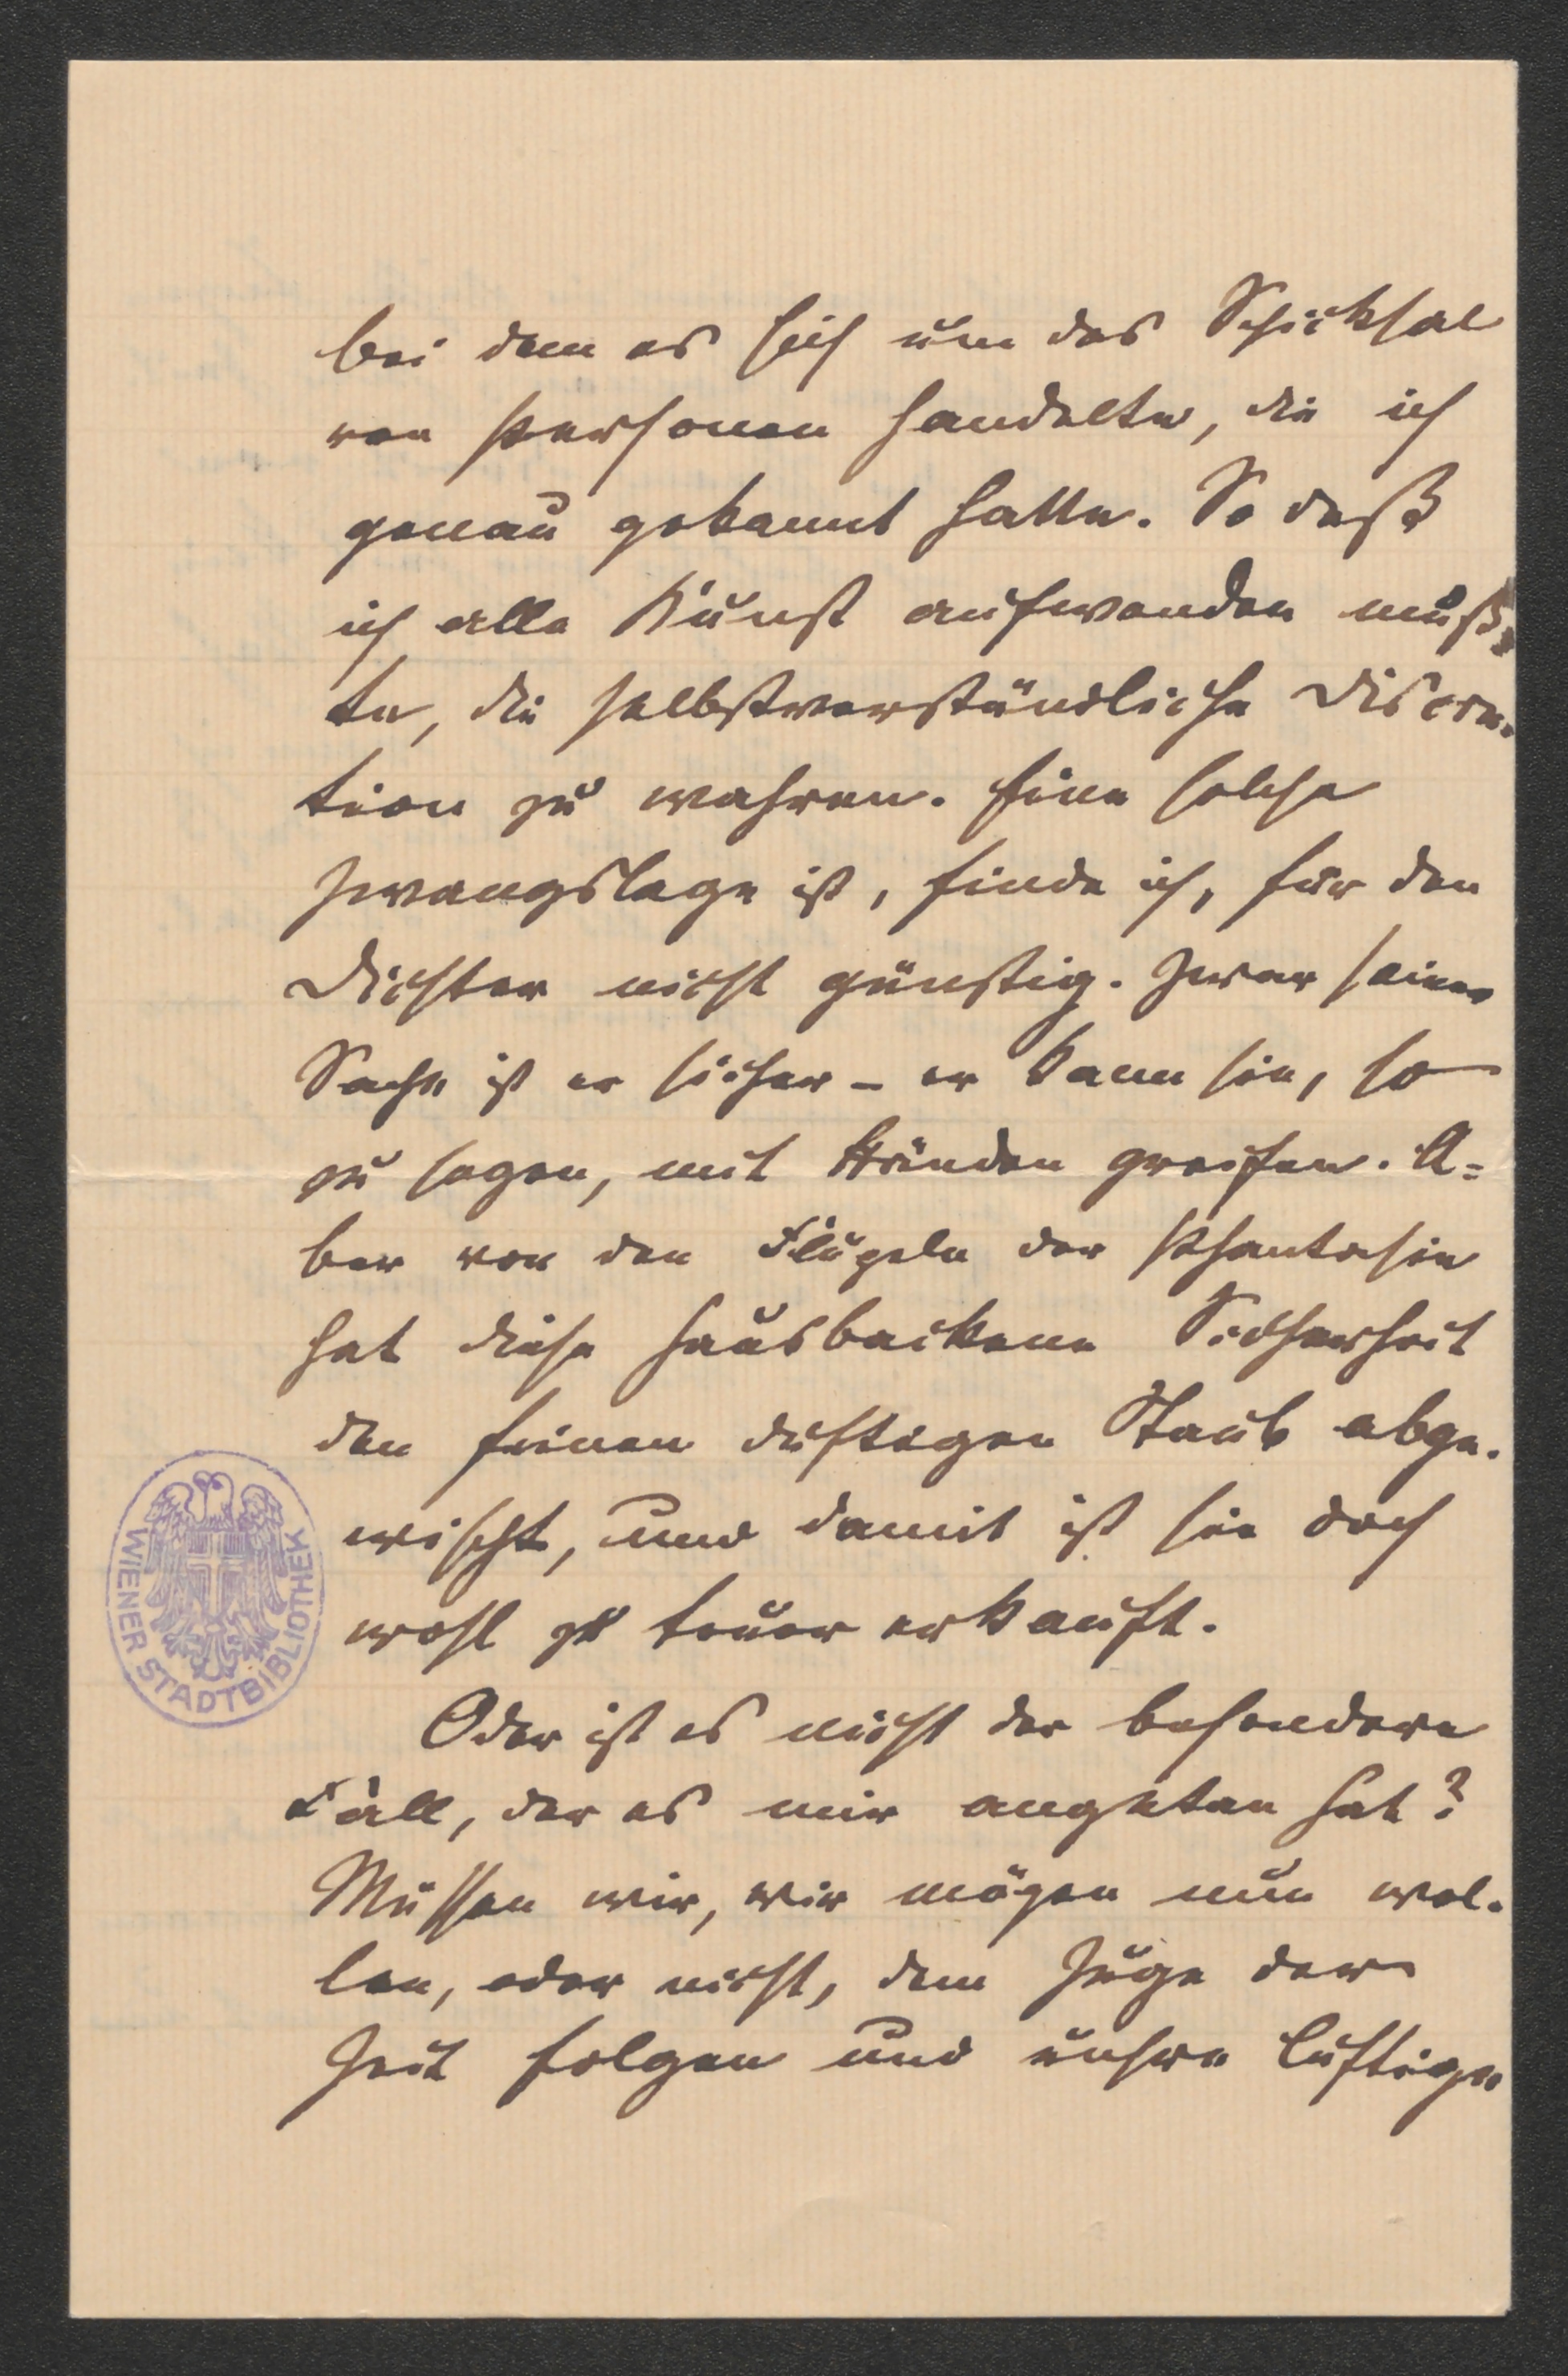 bei dem es sich um das Schicksal
von Personen handelte, die ich
genau gekannt hatte. So daß
ich alle Kunst aufwenden muß-
te, die selbstverständliche Discre-
tion zu wahren. Eine solche
Zwangslage ist, finde ich, für den
Dichter nicht günstig. Zwar seiner
Sache ist er sicher – er kann sie, so
zu sagen, mit Händen greifen. A=
ber von den Flügeln der Phantasie
hat diese hausbackene Sicherheit
den feinen duftigen Staub abge-
wischt, und damit ist sie doch
wohl zu teuer erkauft.
Oder ist es nicht der besondere
Fall, der es mir angetan hat?
Müssen wir, wir mögen nun wol-
len, oder nicht, dem Zuge der
Zeit folgen und unsre luftigen
WIENER STADTBIBLIOTHEK